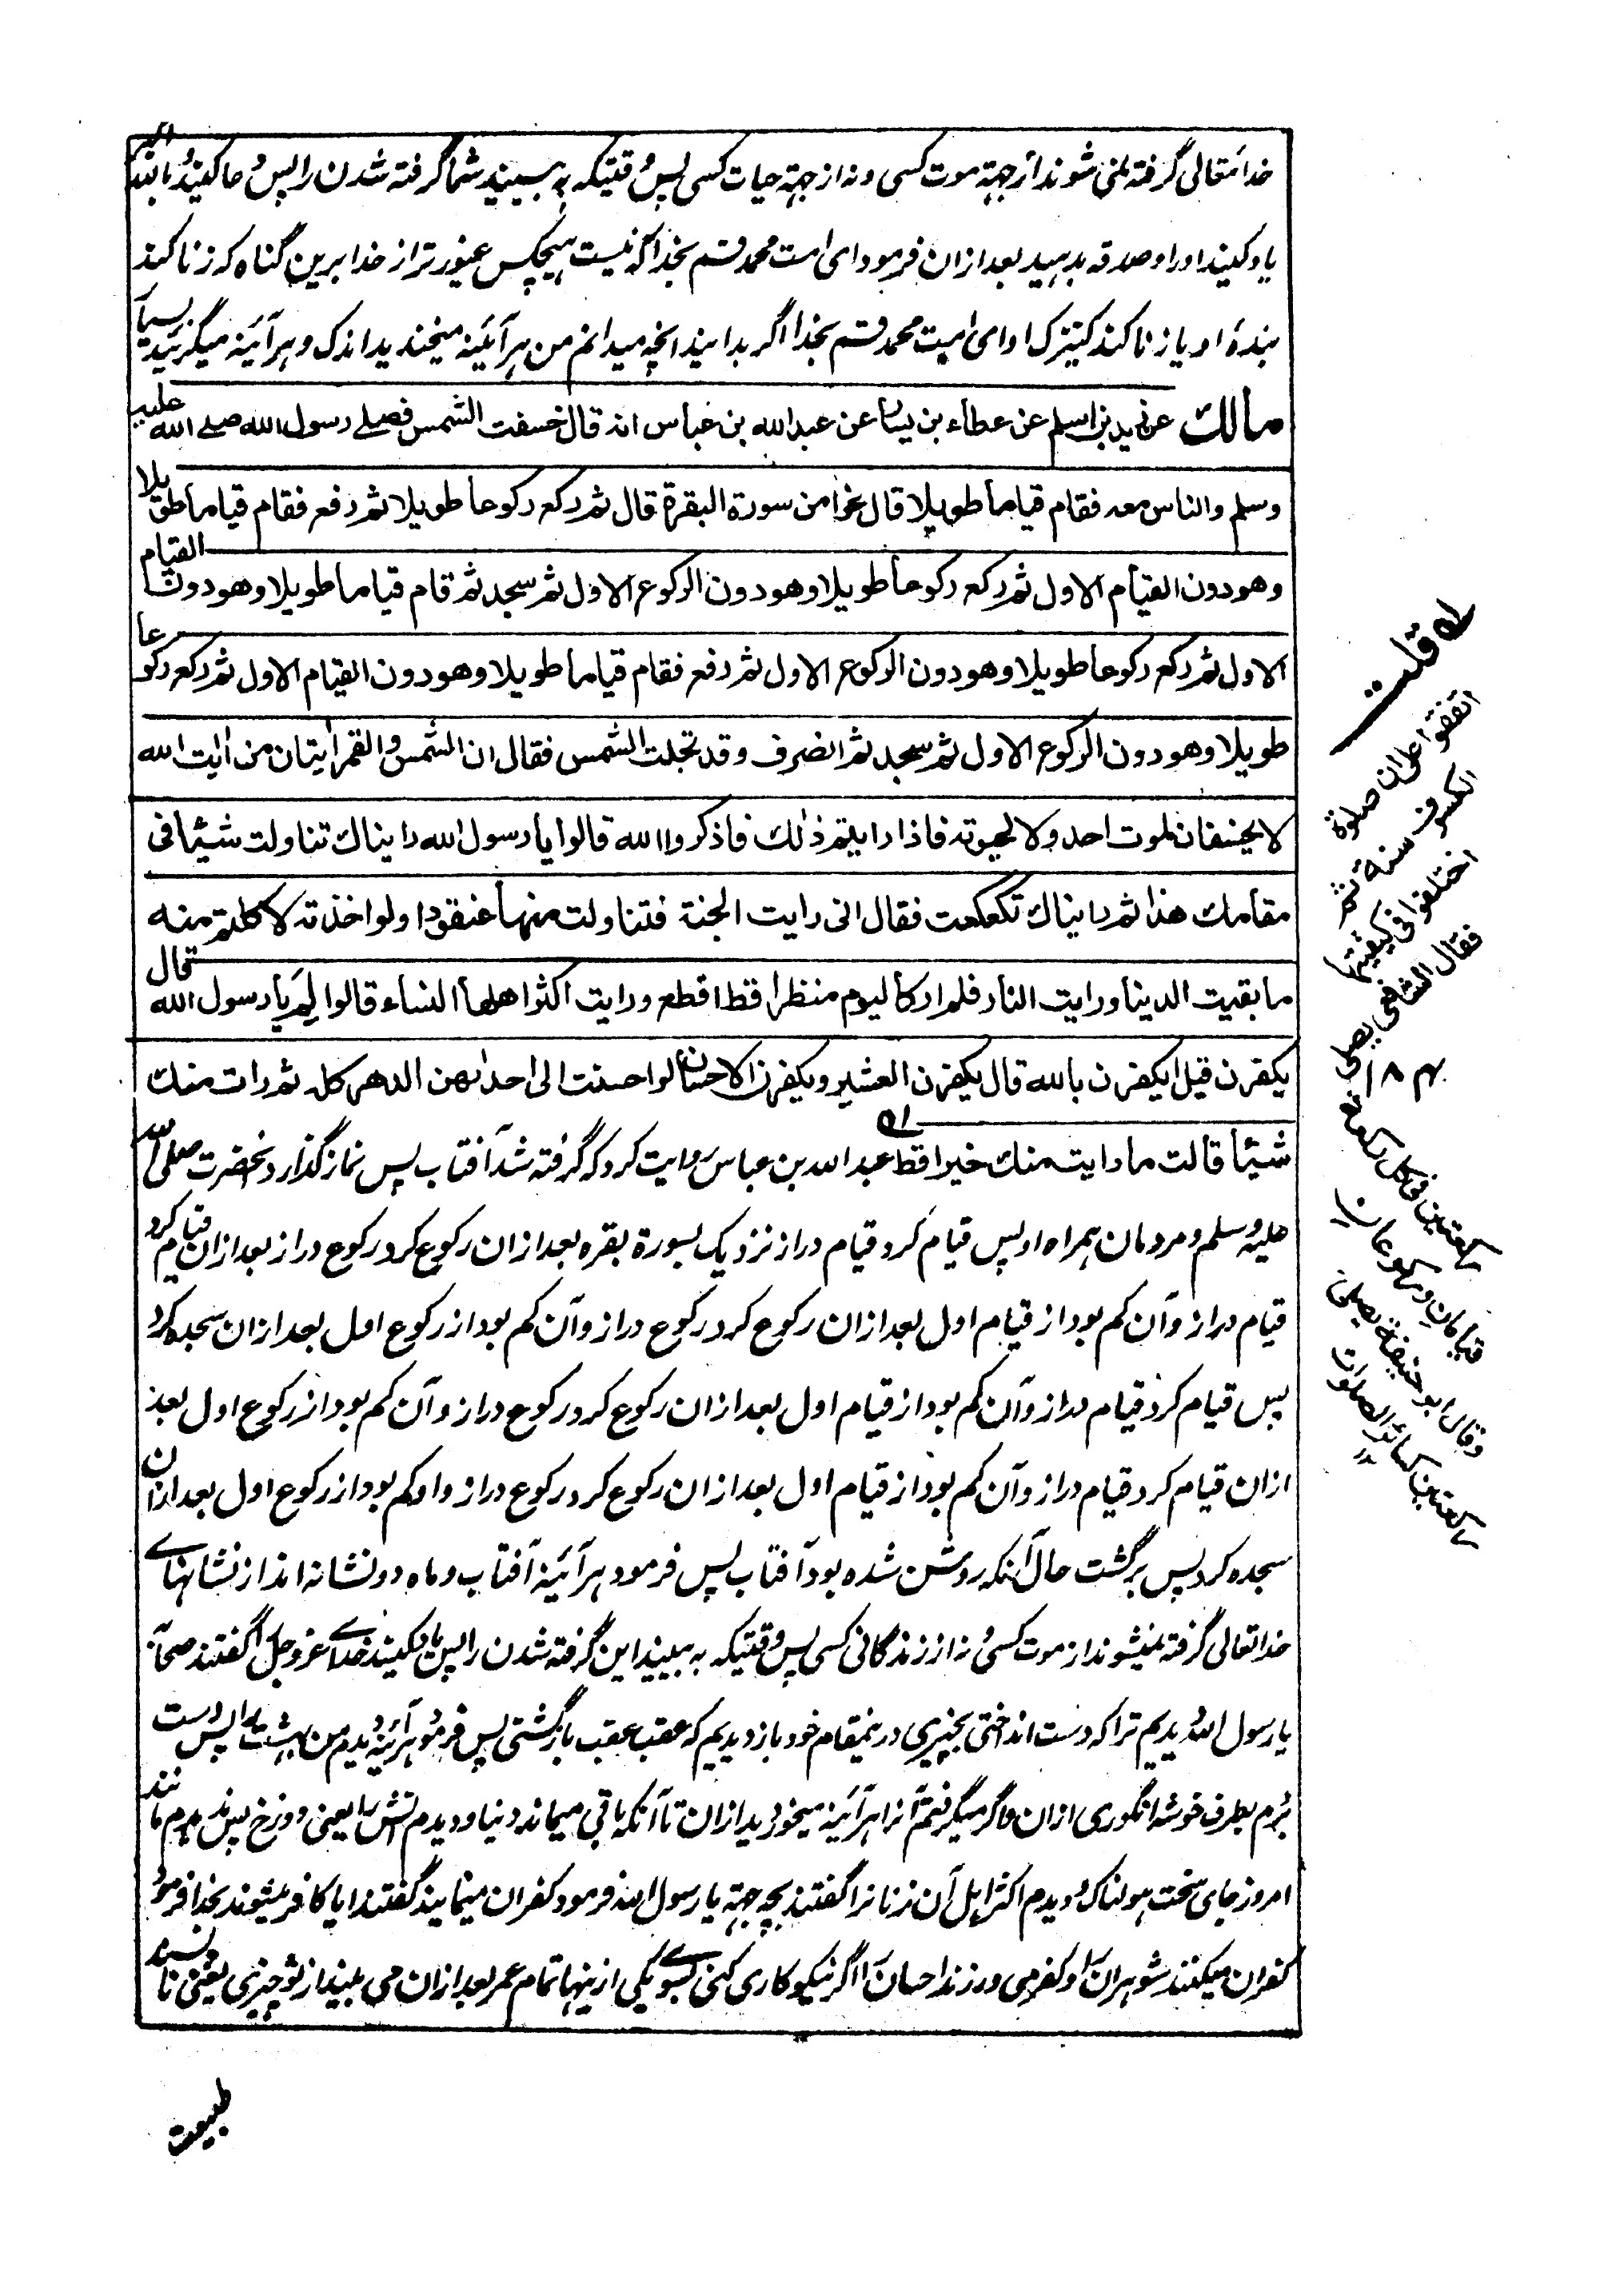 خدا تعالی گرفته نمی شوند از جهته موت کسی و نه از جهته حیات کسی پس وقتیکه به بینید شما گرفته شدن را پس دعا کنید و بالله اکبر
یاد کنید او را و صدقه بدهید بعد از ان فرمود ای امت محمد قسم بخدا که نیست هیچکس غیور تر از خدا برین گناه که زنا کند
بندهٔ او یا زنا کند کنیزک او ای امت محمد قسم بخدا اگر بدانید انچه میدانم من هر آئینه میخندیدید اندک و هر آئینه میگریستید بسیار
مالك عن زيد بن اسلم عن عطاء بن يسار عن عبد الله بن عباس انه قال خسفت الشمس فصلے رسول الله صلے الله عليه
وسلم والناس معه فقام قياما طويلا قال نحوا من سورة البقرة قال ثم ركع ركوعا طويلا ثم رفع فقام قياما طويلا
وهو دون القيام الاول ثم ركع ركوعا طويلا وهو دون الركوع الاول ثم سجد ثم قام قياما طويلا وهو دون القيام
الاول ثم ركع ركوعا طويلا وهو دون الركوع الاول ثم رفع فقام قياما طويلا وهو دون القيام الاول ثم ركع ركوعا
طويلا وهو دون الركوع الاول ثم سجد ثم انصرف وقد تجلت الشمس فقال ان الشمس والقمر ايتان من ايت الله
لا يخسفان لموت احد ولا لحيوته فاذا رايتم ذلك فاذكروا الله قالوا يا رسول الله رايناك تناولت شيئا في
مقامك هذا ثم رايناك تكعكعت فقال انى رايت الجنة فتناولت منها عنقودا ولو اخذته لاكلتم منه
ما بقيت الدينا ورايت النار فلم ار كاليوم منظرا قط افظع ورايت اكثر اهلها النساء قالوا لم يا رسول الله قال
يكفرن قيل ايكفرن بالله قال يكفرن العشير ويكفرن الاحسان لو احسنت الى احدٰىهن الدهر كله ثم رات منك
شيئا قالت ما رايت منك خيرا قط عبد الله بن عباس روایت کرد که گرفته شد آفتاب پس نماز گذارد آنحضرت صلی الله
علیه وسلم و مردمان همراه او پس قیام کرد قیام دراز نزدیک بسورة بقره بعد از ان رکوع کرد رکوع دراز بعد از ان قیام کرد
قیام دراز و آن کم بود از قیام اول بعد از ان رکوع کرد رکوع دراز و آن کم بود از رکوع اول بعد از ان سجده کرد
پس قیام کرد قیام دراز و آن کم بود از قیام اول بعد از ان رکوع کرد رکوع دراز و آن کم بود از رکوع اول بعد
ازان قیام کرد قیام دراز و آن کم بود از قیام اول بعد از ان رکوع کرد رکوع دراز و او کم بود از رکوع اول بعد از ان
سجده کرد پس برگشت حال آنکه روشن شده بود آفتاب پس فرمود هر آئینه آفتاب و ماه دو نشانه اند از نشانهائے
خدا تعالی گرفته نمیشوند از موت کسی و نه از زندگانی کسی پس وقتیکه به بینید این گرفته شدن را پس یاد کنید خدائے عز و جل را گفتند صحابه
یا رسول الله دیدیم ترا که دست انداختی بچیزی درینمقام خود باز دیدیم که عقب عقب بازگشتی پس فرمود هر آئینه دیدم من بهشت را پس دست
بردم بطرف خوشه انگوری ازان و اگر میگرفتم آنرا هر آئینه میخوردید ازان تا آنکه باقی میماند دنیا و دیدم آتش را یعنی دوزخ پس ندیدم مانند
امروز جای سخت هولناک و دیدم اکثر اهل آن زنانرا گفتند بچه جهته یا رسول الله فرمود کفران مینمایند گفتند ایا کافر میشوند بخدا فرمود
کفران میکنند شوهران را و کفر می ورزند احسان را اگر نیکوکاری کنی بسوئے یکی ازینها تمام عمر بعد ازان می بیند از تو چیزی یعنی ناپسند
طبیعت
له قلت
اتفقوا على ان صلوة
الكسوف سنة ثم
اختلفوا فى كيفيتها
فقال الشافعى يصلى
بهم
ركعتين فى كل ركعة
قيامان وركوعان
وقال ابو حنيفة يصلى
ركعتين كسائر الصلوات